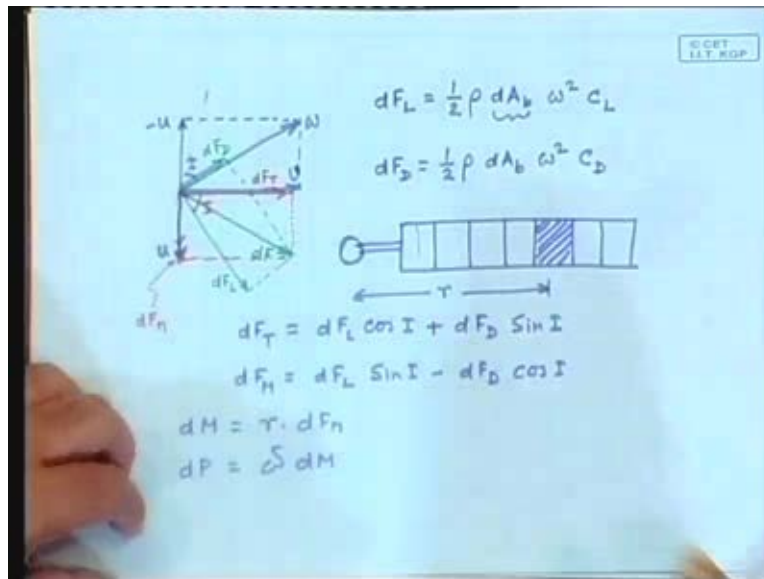 © CET
I.I.T. KGP
dF_L = 1/2 ρ dA_b ω² C_L
dF_D = 1/2 ρ dA_b ω² C_D
-u
ω
dF_D
I
dF_T
υ
I
u
dF
dF_L
dF_n
r
dF_T = dF_L cos I + dF_D Sin I
dF_M = dF_L Sin I - dF_D cos I
dM = r. dF_n
dP = dM